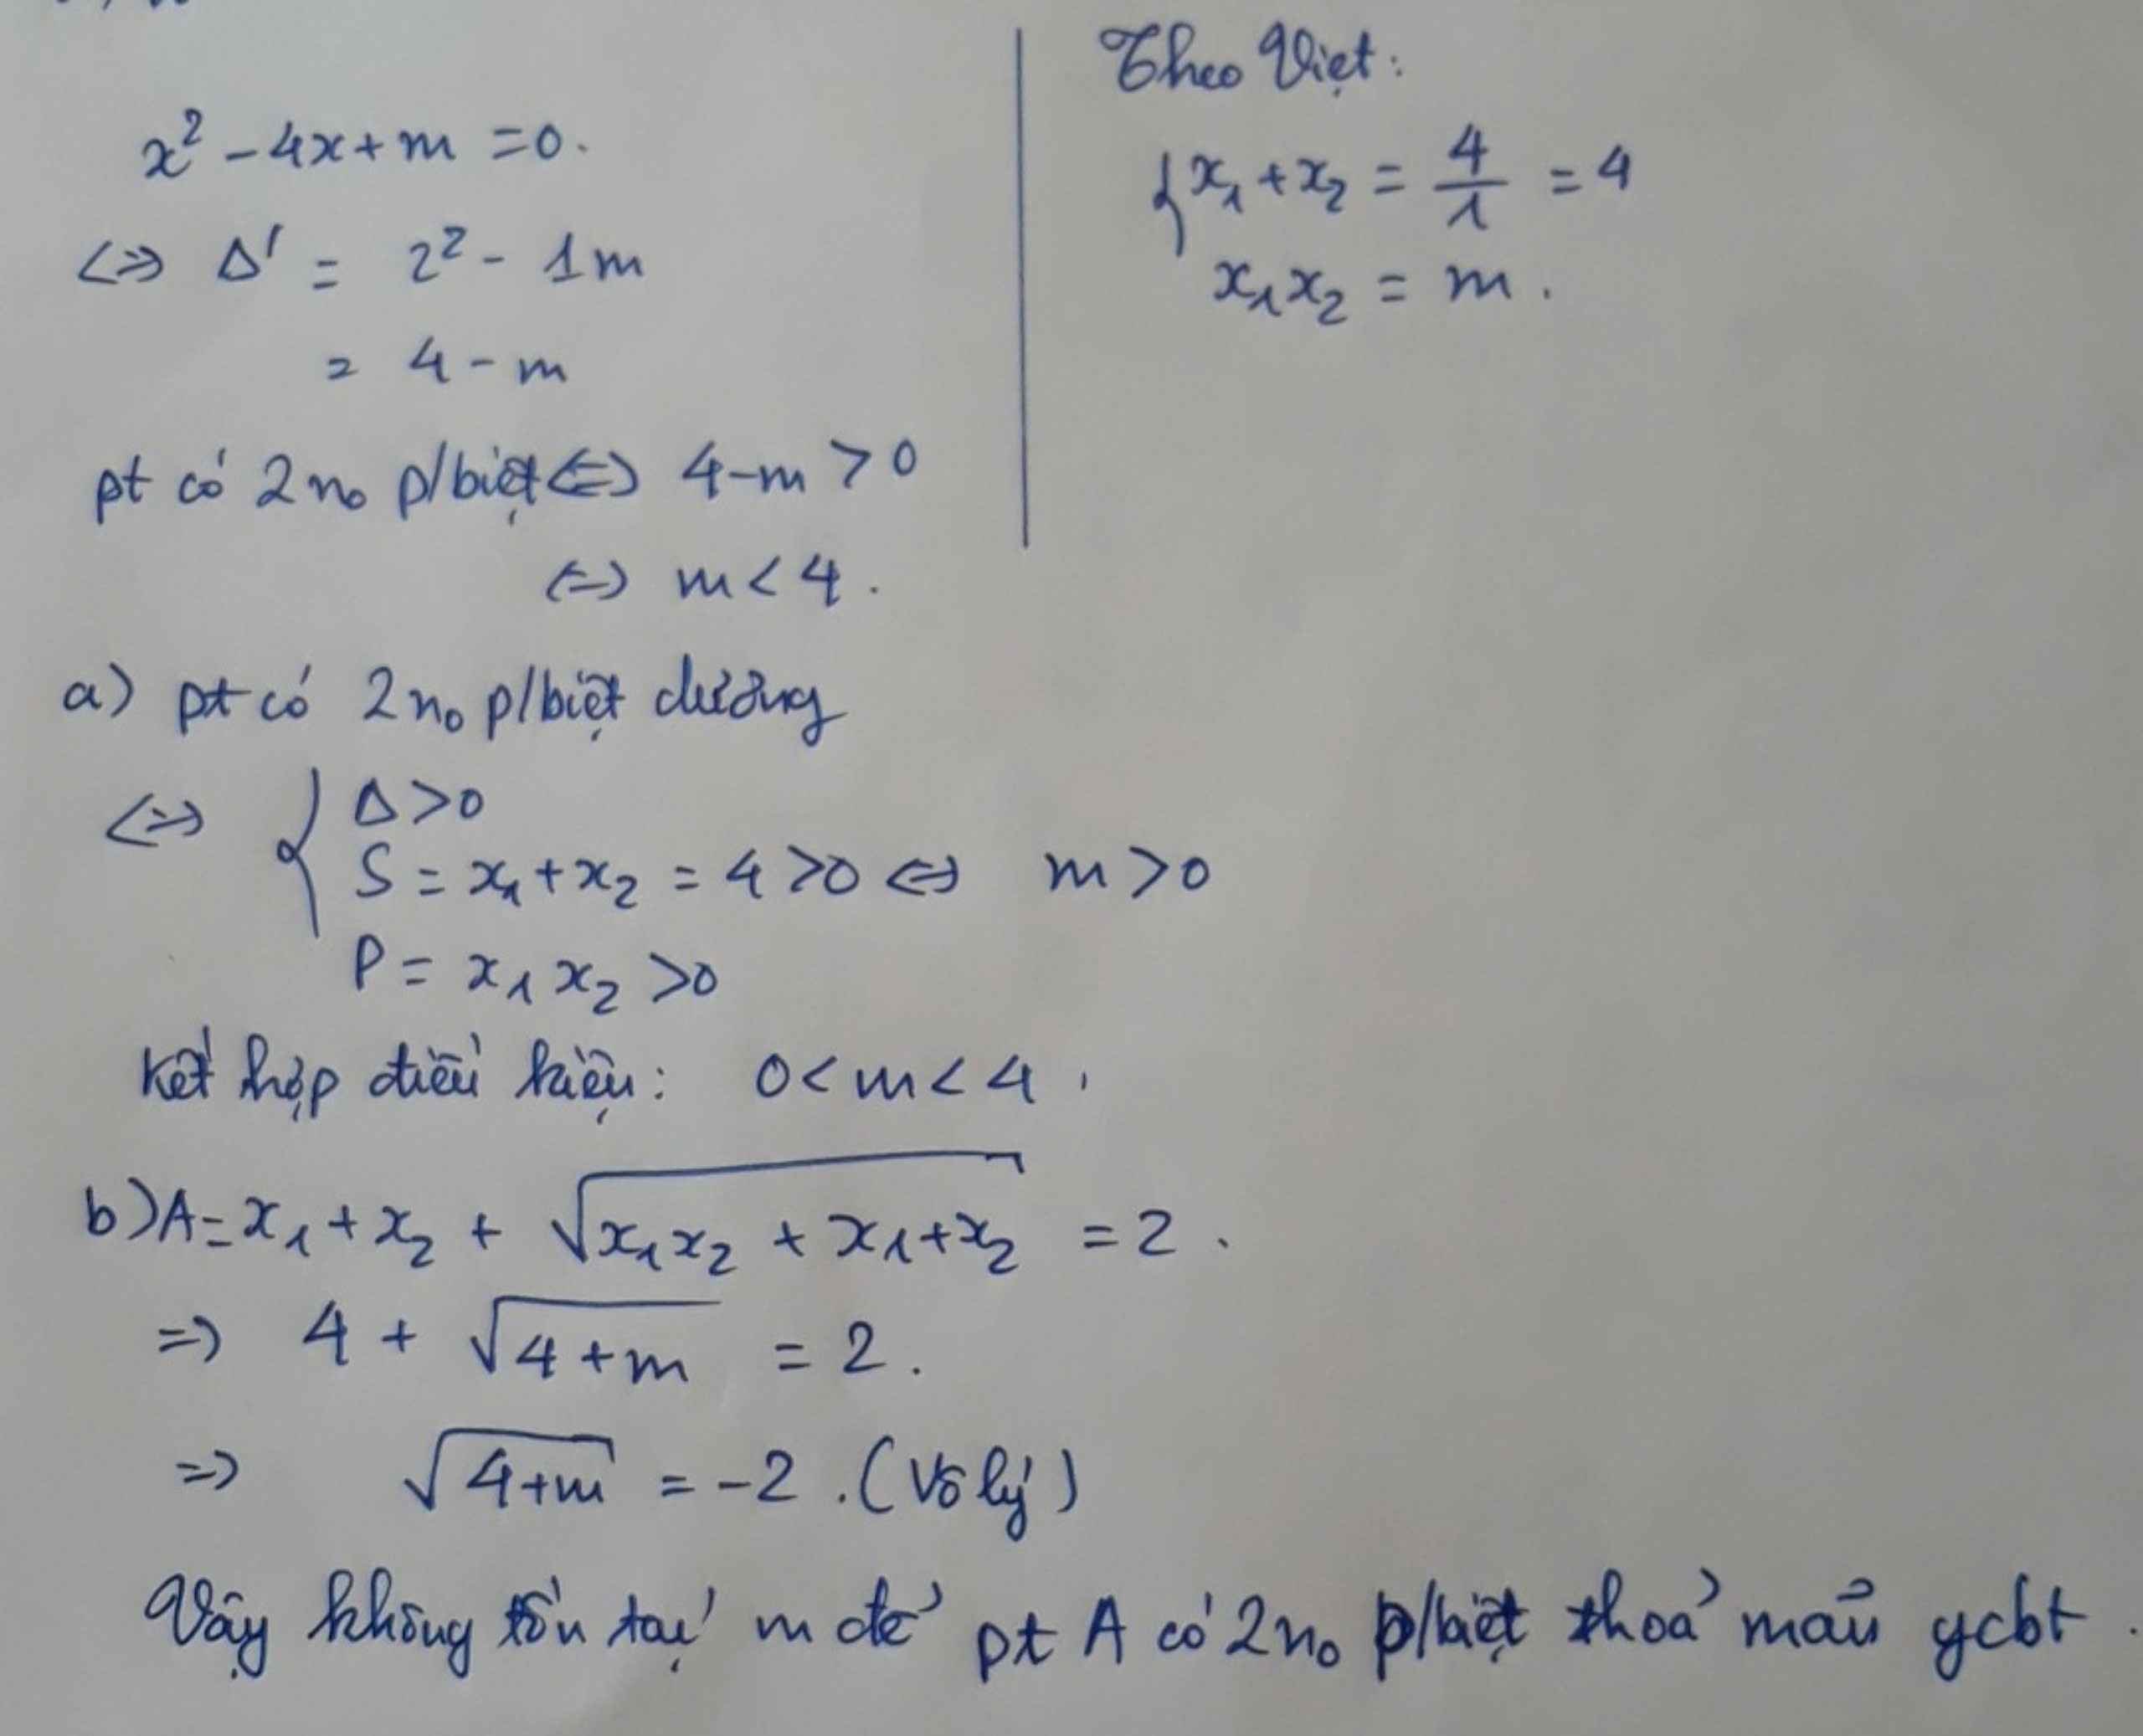 x² - 4x + m = 0.
<=> Δ' = 2² - 1m
= 4 - m
pt có 2 n₀ p/biệt <=> 4-m > 0
<=> m < 4.
Theo Việt:
{ x₁ + x₂ = 4/1 = 4
x₁x₂ = m.
a) pt có 2 n₀ p/biệt dương
<=> { Δ > 0
S = x₁ + x₂ = 4 > 0 <=> m > 0
P = x₁ x₂ > 0
Kết hợp điều kiện: 0 < m < 4.
b) A = x₁ + x₂ + √(x₁x₂ + x₁ + x₂) = 2.
=> 4 + √(4 + m) = 2.
=> √(4+m) = -2. (Vô lý)
Vậy không tồn tại m để pt A có 2 n₀ p/biệt thoả mãn ycbt.